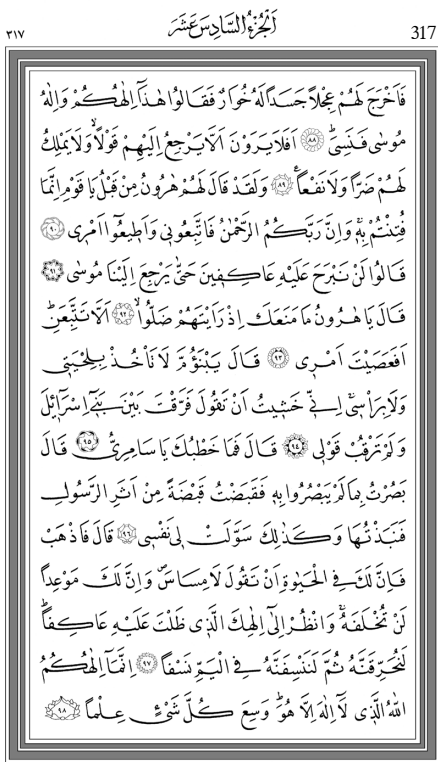 ٣١٧ اَلْجُزْءُ السَّادِسَ عَشَرَ 317
فَاَخْرَجَ لَهُمْ عِجْلًا جَسَدًا لَهُ خُوَارٌ فَقَالُوا هٰذَٓا اِلٰهُكُمْ وَاِلٰهُ
مُوسٰى فَنَسِىَۜ ﴿٨٨﴾ اَفَلَا يَرَوْنَ اَلَّا يَرْجِعُ اِلَيْهِمْ قَوْلًاۙ وَلَا يَمْلِكُ
لَهُمْ ضَرًّا وَلَا نَفْعًا۟ ﴿٨٩﴾ وَلَقَدْ قَالَ لَهُمْ هٰرُونُ مِنْ قَبْلُ يَا قَوْمِ اِنَّمَا
فُتِنْتُمْ بِهٖۚ وَاِنَّ رَبَّكُمُ الرَّحْمٰنُ فَاتَّبِعُونٖى وَاَطٖيعُٓوا اَمْرٖى ﴿٩٠﴾
قَالُوا لَنْ نَبْرَحَ عَلَيْهِ عَاكِفٖينَ حَتّٰى يَرْجِعَ اِلَيْنَا مُوسٰى ﴿٩١﴾
قَالَ يَا هٰرُونُ مَا مَنَعَكَ اِذْ رَاَيْتَهُمْ ضَلُّواۙ ﴿٩٢﴾ اَلَّا تَتَّبِعَنِۜ
اَفَعَصَيْتَ اَمْرٖى ﴿٩٣﴾ قَالَ يَبْنَؤُمَّ لَا تَأْخُذْ بِلِحْيَتٖى
وَلَا بِرَأْسٖىۚ اِنّٖى خَشٖيتُ اَنْ تَقُولَ فَرَّقْتَ بَيْنَ بَنٖٓى اِسْرَٓائٖلَ
وَلَمْ تَرْقُبْ قَوْلٖى ﴿٩٤﴾ قَالَ فَمَا خَطْبُكَ يَا سَامِرِىُّ ﴿٩٥﴾ قَالَ
بَصُرْتُ بِمَا لَمْ يَبْصُرُوا بِهٖ فَقَبَضْتُ قَبْضَةً مِنْ اَثَرِ الرَّسُولِ
فَنَبَذْتُهَا وَكَذٰلِكَ سَوَّلَتْ لٖى نَفْسٖى ﴿٩٦﴾ قَالَ فَاذْهَبْ
فَاِنَّ لَكَ فِى الْحَيٰوةِ اَنْ تَقُولَ لَا مِسَاسَۖ وَاِنَّ لَكَ مَوْعِدًا
لَنْ تُخْلَفَهُۚ وَانْظُرْ اِلٰٓى اِلٰهِكَ الَّذٖى ظَلْتَ عَلَيْهِ عَاكِفًاۜ
لَنُحَرِّقَنَّهُ ثُمَّ لَنَنْسِفَنَّهُ فِى الْيَمِّ نَسْفًا ﴿٩٧﴾ اِنَّمَٓا اِلٰهُكُمُ
اللّٰهُ الَّذٖى لَٓا اِلٰهَ اِلَّا هُوَۜ وَسِعَ كُلَّ شَىْءٍ عِلْمًا ﴿٩٨﴾